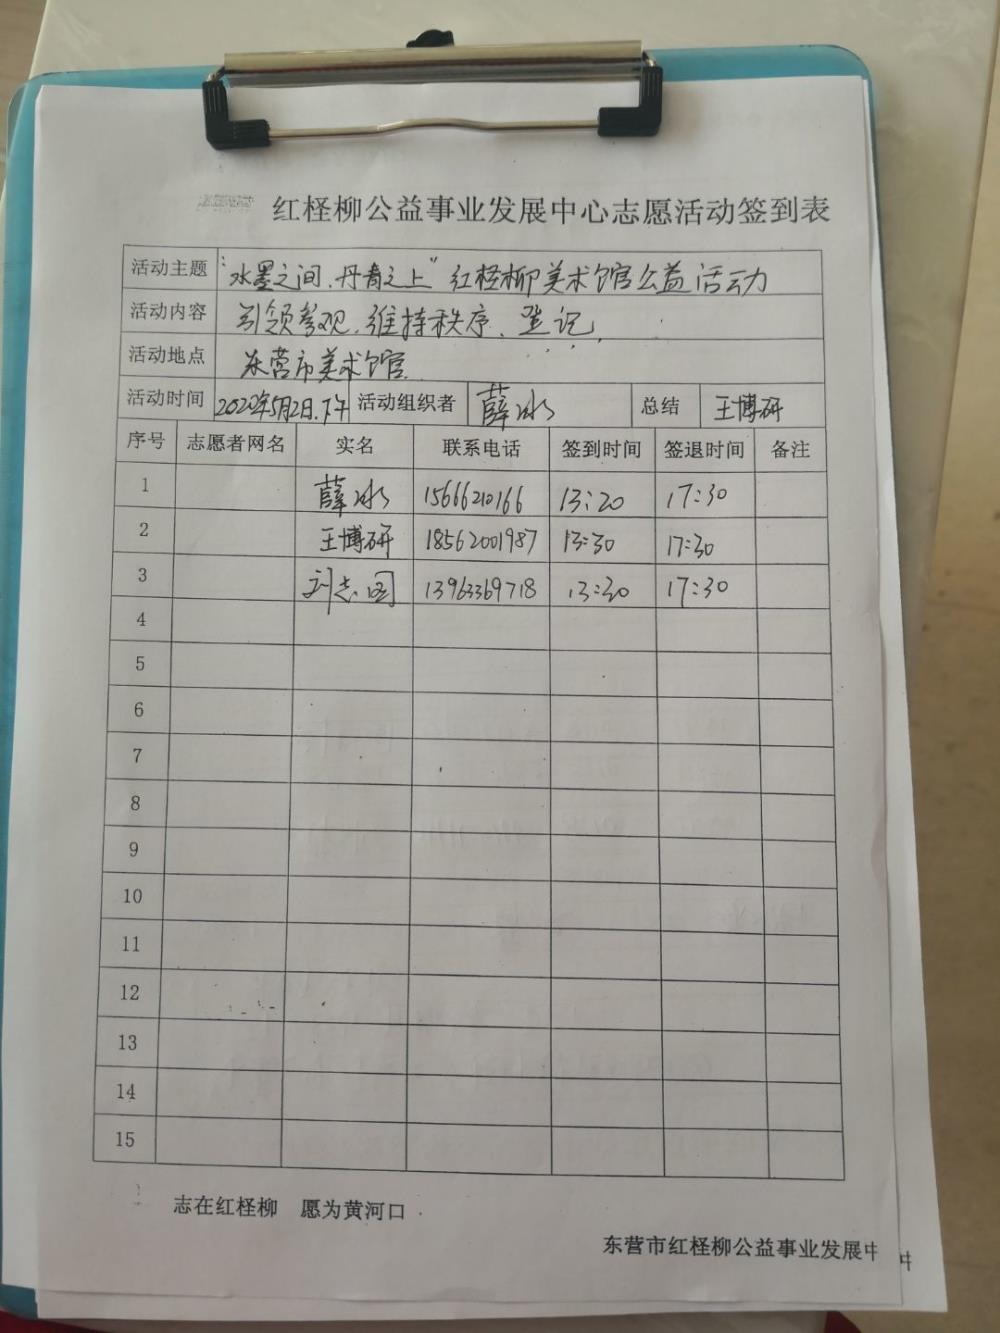 红柽柳公益事业发展中心志愿活动签到表
活动主题 “水墨之间，丹青之上”红柽柳美术馆公益活动
活动内容 引领参观、维持秩序、登记
活动地点 东营市美术馆
活动时间 2020年5月2日.下午 活动组织者 薛冰 总结 王博研
序号 志愿者网名 实名 联系电话 签到时间 签退时间 备注
1 薛冰 15666210166 13:20 17:30
2 王博研 18562001987 13:30 17:30
3 刘志国 13963369718 13:30 17:30
4
5
6
7
8
9
10
11
12
13
14
15
志在红柽柳 愿为黄河口
东营市红柽柳公益事业发展中